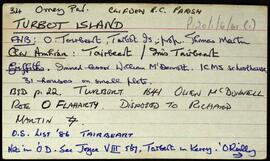 34 Omey Par. CLIFDEN R.C. PARISH
P.120/2/61 (1)
TURBOT ISLAND
FNB: O Turbot, Talbot Is; prop. James Martin
Cen. Amhrán: Tairbeart / Inis Tairbeart
Griffith: William McDermott. ICMS schoolhouse
31 houses on small plots.
BSD p.22. TURBOTT 1641 OWEN McDONNELL
PETE O FLAHARTY DISPOSED TO RICHARD
MARTIN
O.S. LIST '86 TAIRBEART
Note in Ó D. See Joyce VIII 567, Tarbert in Kerry. 'O'Reilly